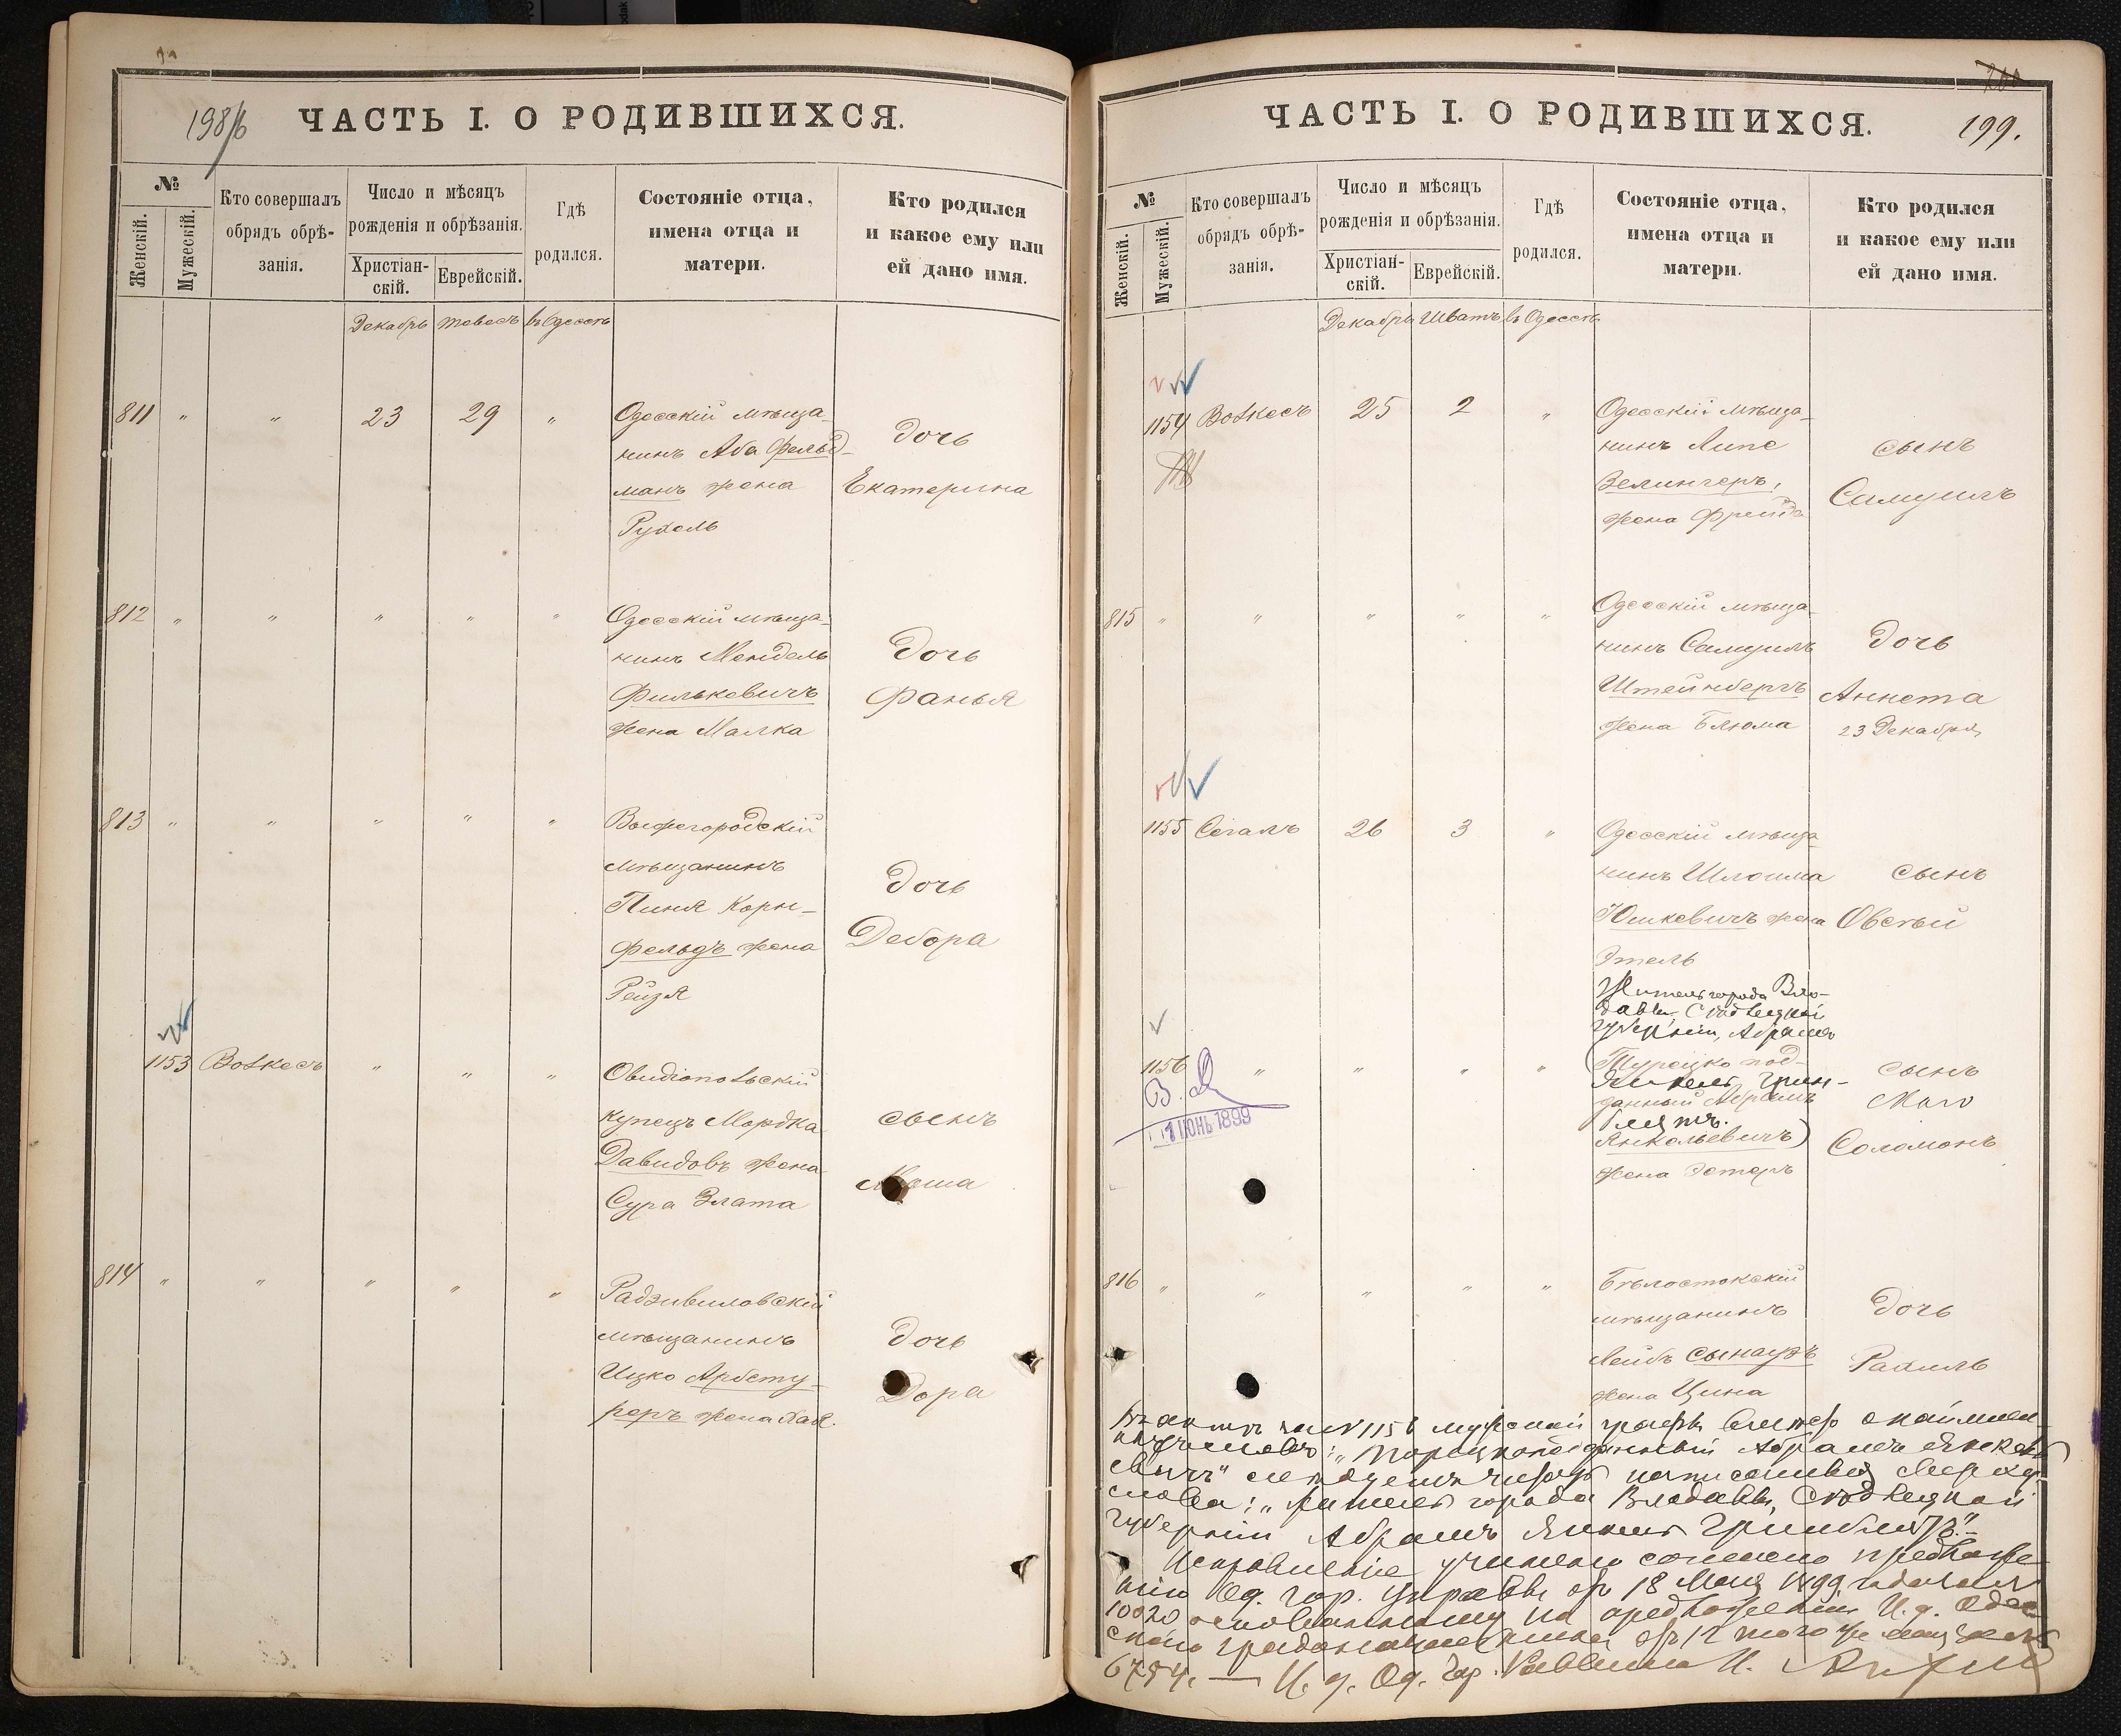 198/б ЧАСТЬ I. О РОДИВШИХСЯ.
№
Женскій.
Мужескій.
Кто совершалъ
обрядъ обрѣ-
занія.
Число и мѣсяцъ
рожденія и обрѣзанія.
Христіан-
скій.
Еврейскій.
Гдѣ
родился.
Состояніе отца,
имена отца и
матери.
Кто родился
и какое ему или
ей дано имя.
Декабрь Тевесъ въ Одессѣ
811 " " 23 29 " Одесскій мѣща-
нинъ Аба Фельд-
манъ жена
Рухель
дочь
Екатерина
812 " " " " " Одесскій мѣща-
нинъ Мендель
Филькевичъ
жена Малка
дочь
Фанья
813 " " " " " Вышегородскій
мѣщанинъ
Пиня Корн-
фельдъ жена
Рейзя
дочь
Дебора
1153 Волкесъ " " " Овидіопольскій
купецъ Мордка
Давидовъ жена
Сура Злата
сынъ
814 " " " " " Радзивиловскій
мѣщанинъ
Ицко Арбету-
реръ жена Хая.
дочь
Дора
ЧАСТЬ I. О РОДИВШИХСЯ. 199.
№
Женскій.
Мужескій.
Кто совершалъ
обрядъ обрѣ-
занія.
Число и мѣсяцъ
рожденія и обрѣзанія.
Христіан-
скій.
Еврейскій.
Гдѣ
родился.
Состояніе отца,
имена отца и
матери.
Кто родился
и какое ему или
ей дано имя.
Декабрь Шватъ въ Одессѣ
1154 Волкесъ 25 2 " Одесскій мѣща-
нинъ Липе
Зелингеръ,
жена Фрейда
сынъ
Самуилъ
815 " " " " " Одесскій мѣща-
нинъ Самуилъ
Штейнбергъ
жена Блюма
дочь
Аннета
23 Декабря
1155 Сегалъ 26 3 " Одесскій мѣща-
нинъ Шлоима
Юшкевичъ жена
Этель
сынъ
Овсѣй
Житель города Вло-
давы, Сѣдлецкой
губерніи, Абрамъ
1156 " " " " (Турецко под-
Янкель Грин-
данный Абрамъ
блятъ.
Янкельевичъ)
жена Эстеръ
сынъ
Соломонъ
В. Д
1 ІЮНЬ 1899
816 " " " " " Бѣлостокскій
мѣщанинъ
Лейбъ Сынаузъ
жена Цина
дочь
Рахиль
Въ актѣ за № 1156 мужской графы вмѣсто
"Турецкоподданный Абрамъ Янкель
евичъ" слѣдуетъ читать написанныя сверху
слова: "житель города Влодавы, Сѣдлецкой
губерніи Абрамъ Янкель Гринблятъ."
Исправленіе учинено согласно предложе-
нію Од. гор. Управы отъ 18 Мая 1899 г. за №
10020 основанному на предложеніи И. д. Одес-
скаго градоначальника отъ 12 того же Мая за №
6754. — И. д. Од. Гор. Раввина